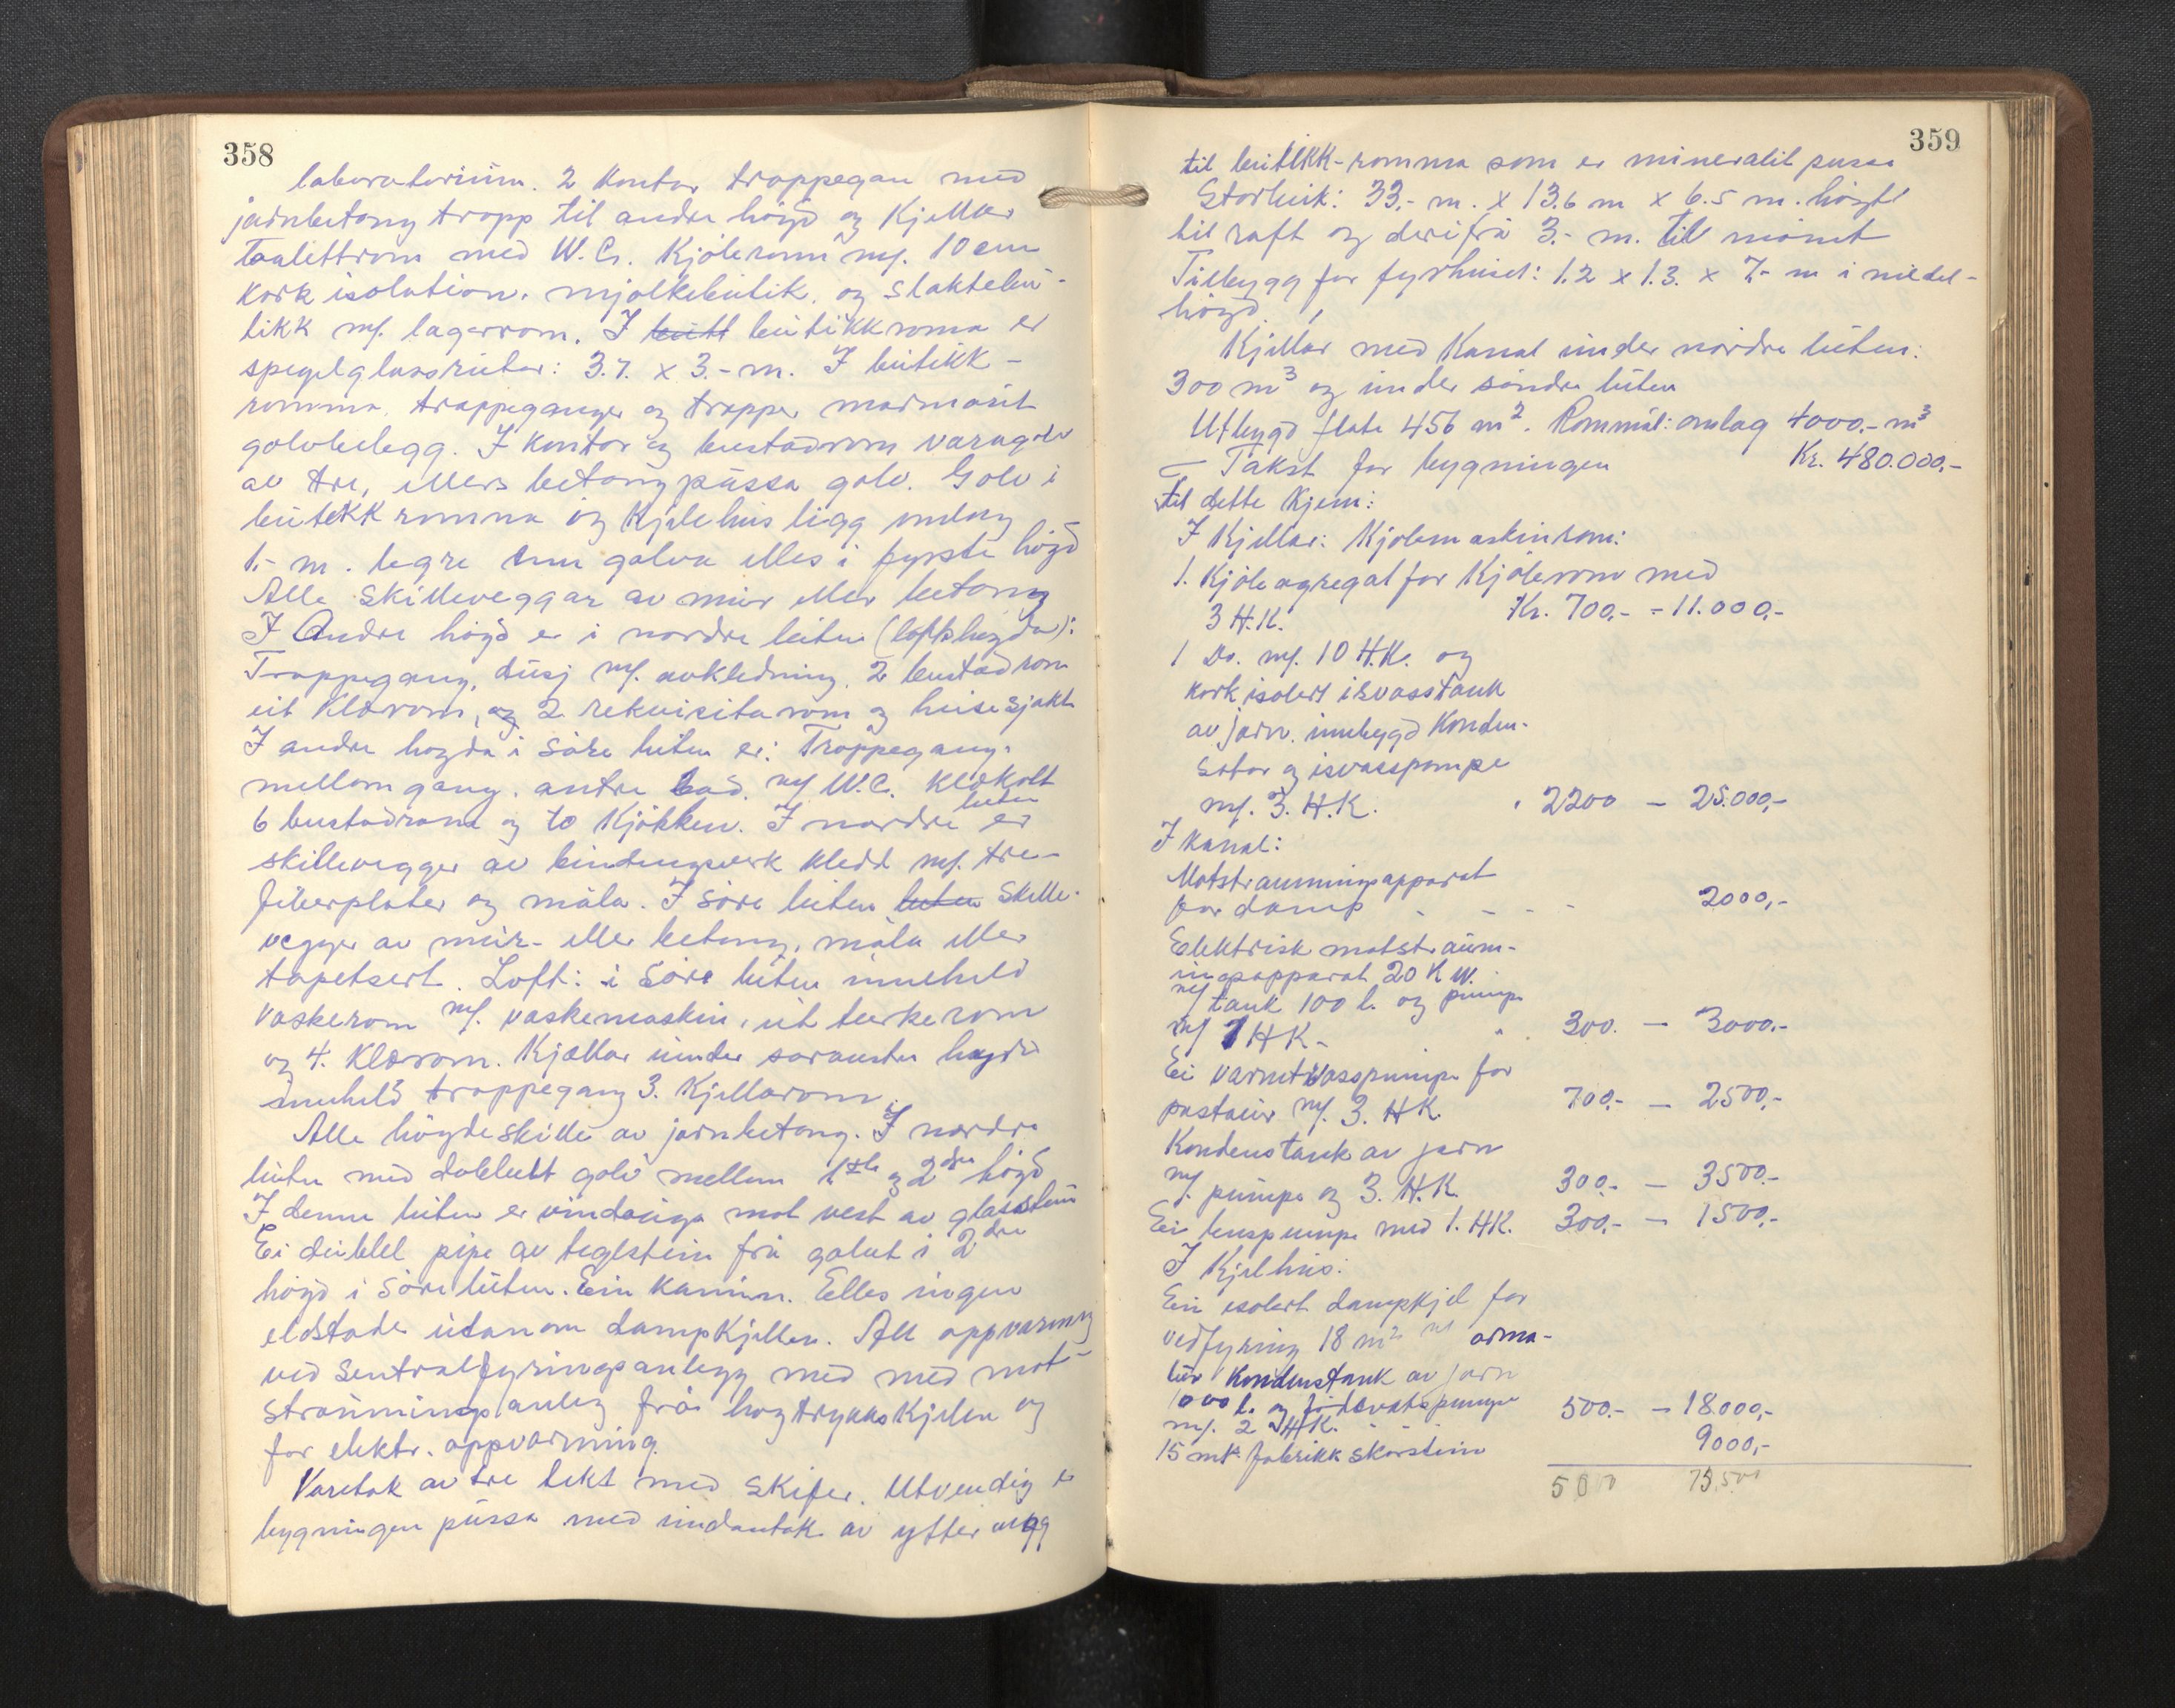 358
laboratorium. 2 Kontor trappegan med
jarnbetong trapp til andre högd og Kjellar
Toalettrom med W.C. Kjölerom m/. 10 cm
Kork isolation. mjölkebutik, og slaktebu-
tikk m/. lagerrom. I butt butikkroma er
spegelglassrutar: 3.7. x 3.- m. I butikk-
romma, trappeganger og trapper marmorit
golvbelegg. I Kontor og bustadrom varagolv
av tre, ellers betong pussa golv. Golv i
butikk romma og Kjelehus ligg omlag
1.- m. legre enn golva elles i fyrste högd
Alle skilleveggar av mur eller betong
I Andre högd er i nordre luten (loftshogda):
Trappegang, dusj m/. avkledning, 2 bustadrom
eit Klerom, og 2 rekvisita rom og heisesjakt
I andre hogda i Söre luten er: Trappegang.
mellomgang. antre bad. m/ W.C. klekott
6 bustadroma og to Kjökken. I nordre luten er
skillevegger av bindingsverk kledd m/. tre-
fiberplater og måla. I söre luten luten Skille-
vegger av mur- eller betong, måla eller
tapetsert. Loft: i Söre luten inneheld
vaskerom m/. vaskemaskin, eit turkerom
og 4. Klerom. Kjellar under
inneheld trappegang 3. Kjellarom.
Alle högdeskille av jarnbetong. I nordre
luten med dobbelt golv mellom 1ste og 2dre högd
I denne luten er vindauga mot vest av glasstein
Ei dubbel pipe av teglstein frå golvet i 2dre
högd i Söre luten. Ein Kamin. Elles ingen
eldstader utanom dampKjellen. All oppvarming
ved Sentralfyringsanlegg med med mot-
straumingsanleg frå hogtrykksKjelen og
for elektr. oppvarming.
Varetak av tre tekt med Skifer. Utvendig er
bygningen pussa med undantak av ytter vegg
359
til butikk-romma som er mineralit pussa
Storleik: 33,- m. x 13.6 m x 6.5 m. högd
til raft og derifrå 3.- m. til mönet
Tilbygg for fyrhuset: 1.2 x 1.3. x 7.- m i middel-
högd.
Kjellar med Kanal under nordre luten:
300 m³ og under söndre luten
Utbygd flate 456 m². Rommål: omlag 4000.- m³
Takst for bygningen Kr. 480.000,-
til dette Kjem:
I Kjellar: Kjölemaskinrom:
1. Kjöleagregat for Kjölerom med
3 H.K. Kr. 700,- - 11.000,-
1 Do. m/. 10 H.K. og
Kork isolert isvasstank
av jarn. innbygd Konden-
sator og isvasspumpe
m/. 3. H.K. " 2200 - 25.000,-
I Kanal:
Motstraumingsapparat
for damp - - - - 2000,-
Elektrisk motstraum-
ingsapparat 20 K W.
m/ tank 100 l. og pumpe
m/ 1 HK- " 300. - 3000.-
Ei varmtvasspumpe for
pastaur m/. 3. HK. 700,- - 2500,-
Kondenstank av jarn
m/. pumpe og 3. H.K. 300,- - 3500.-
Ei lenspumpe med 1. HK. 300,- - 1500,-
I Kjelhus:
Ein isolert dampkjel for
vedfyring 18 m² m/ arma-
tur Kondenstank av jarn
1000 l. og födevatspumpe
m/. 2 HK. - - 500.- - 18.000,-
15 mt. fabrikk skorstein 9000,-
75.500